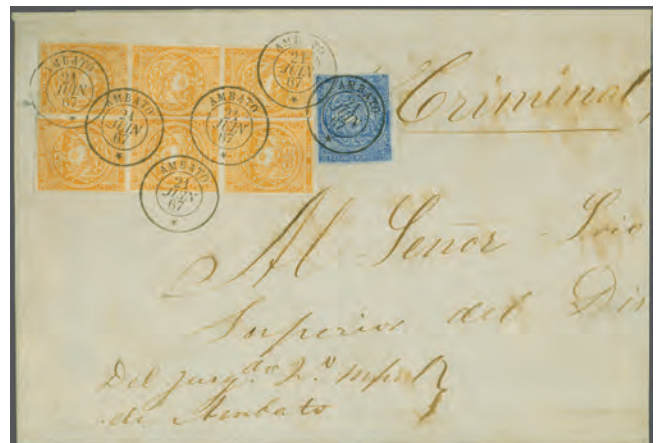 AMBATO
21
JUN
67
AMBATO
21
JUN
67
AMBATO
21
JUN
67
AMBATO
21
JUN
67
AMBATO
21
JUN
67
AMBATO
21
JUN
67
Criminal,
Al Señor
Superior del Dis
Del juzg.do 2.o
de Ambato